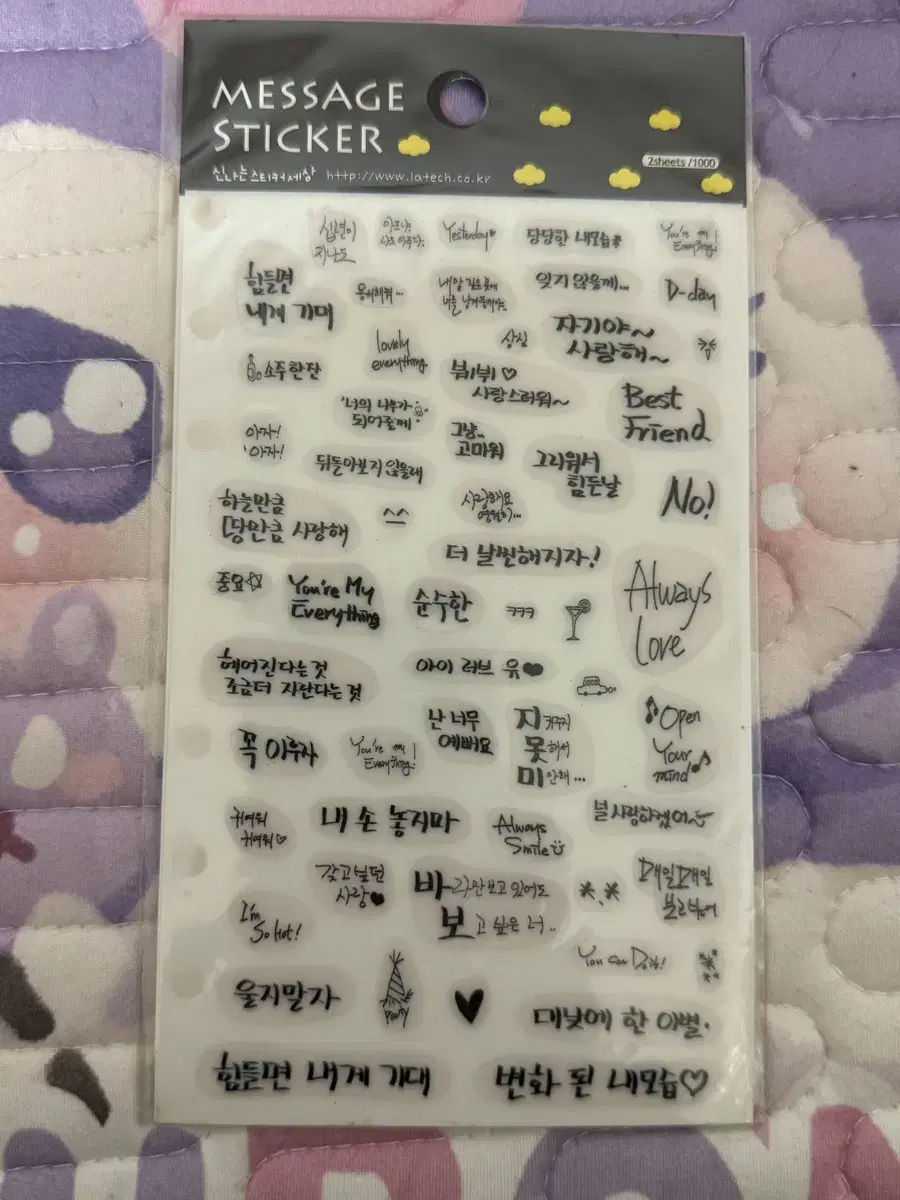 MESSAGE
STICKER
2sheets /1000
신나는스티커세상 http://www.latech.co.kr
십년이
지난도
Yesterday
당당한 내모습
You're my
Everything!
힘들면
내게 기대
용서해줘...
잊지 않을께...
D-day
lovely
everything
상심
자기야~
사랑해~
소주한잔
뷰티뷰 ♡
사랑스러워~
Best
Friend
'너의 나무가
되어줄께
아자!
아자!
그냥..
고마워
뒤돌아보지 않을래
그리워서
힘든날
No!
하늘만큼
땅만큼 사랑해
^^
사랑해요
영원히...
더 날씬해지자!
Always
Love
중요☆
You're My
Everything
순수한
ㅋㅋㅋ
헤어진다는것
조금더 자란다는것
아이 러브 유♥
꼭 이루자
You're my
Everything!
난 너무
예뻐요
지켜주지
못해서
미안해...
Open
Your
mind
귀여워
귀여워♡
내 손 놓지마
Always
Smile
널 사랑하겠어
갖고놀던
사랑♥
바라만보고 있어도
보고 싶은 너..
*.*
매일매일
I'm
So Hot!
You Can Do It!
울지말자
Party
♥
대낮에 한 이별.
힘들면 내게 기대
변화 된 내모습♡